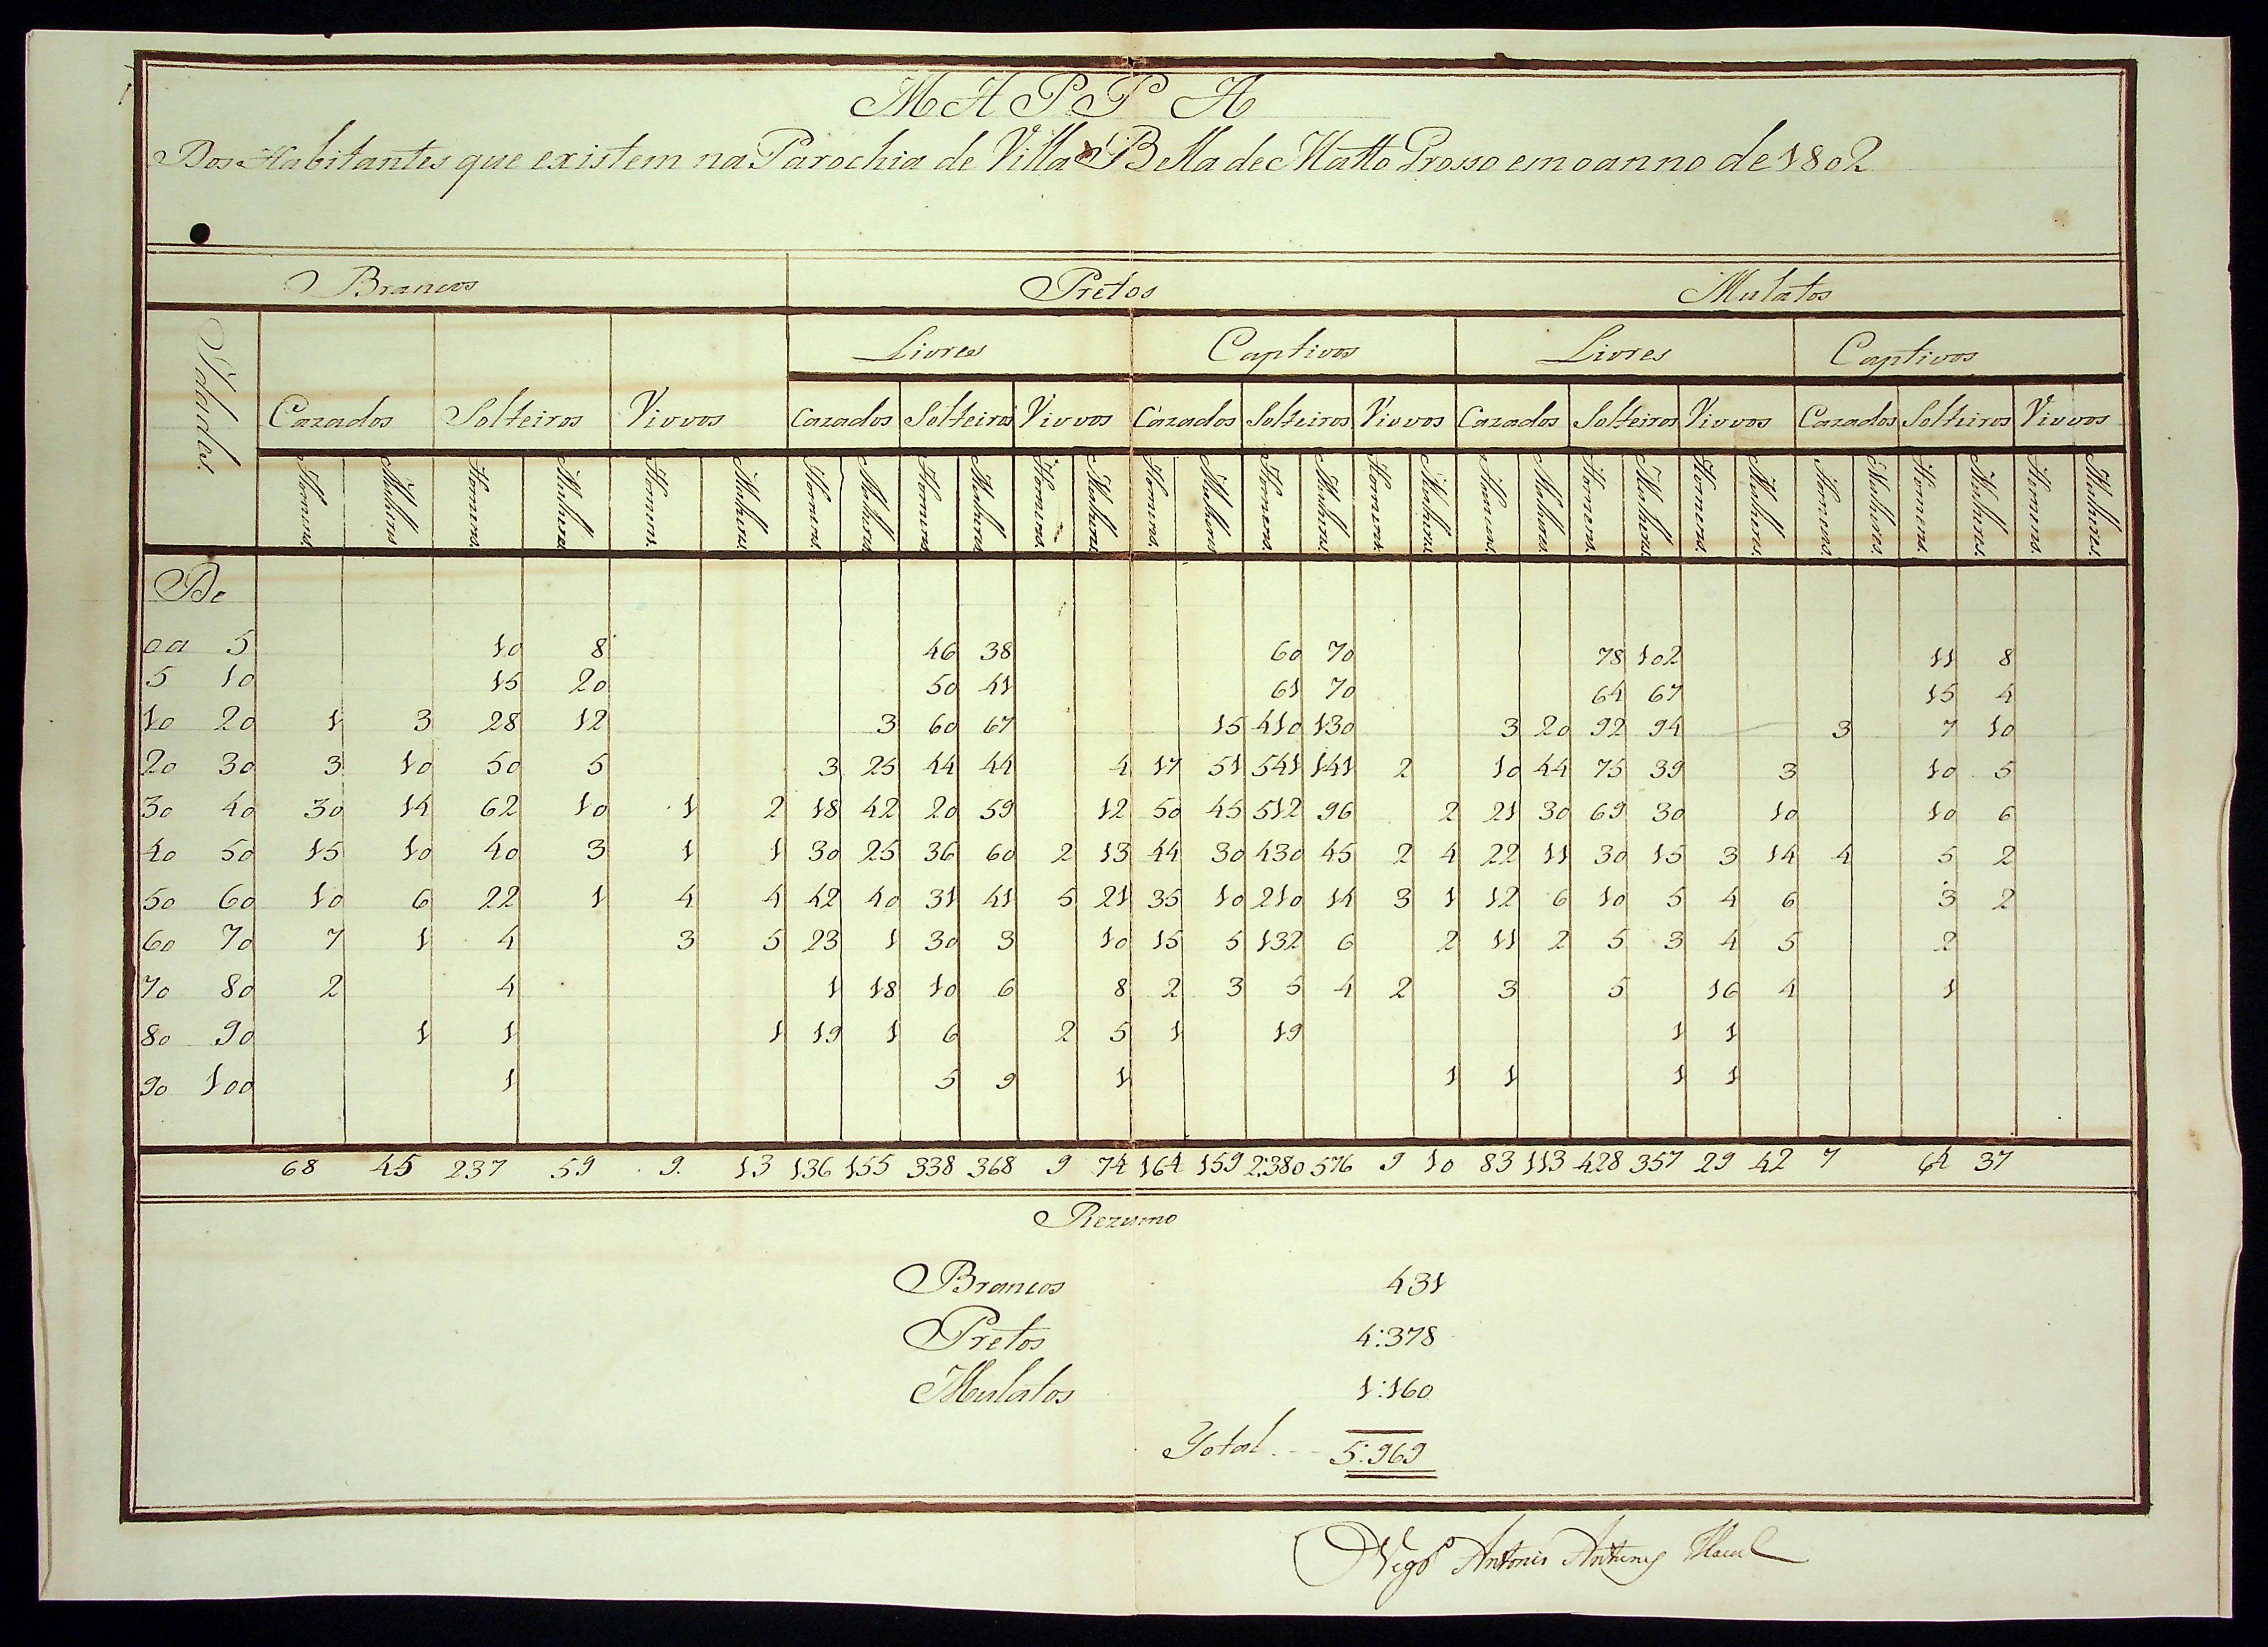 MAPPA
Dos Habitantes que existem na Parochia de Villa Bella de Matto Grosso em o anno de 1802
Brancos Pretos Mulatos
Idades. Livres Captivos Livres Captivos
Cazados Solteiros Viuvos Cazados Solteiros Viuvos Cazados Solteiros Viuvos Cazados Solteiros Viuvos Cazados Solteiros Viuvos
Homens. Mulheres. Homens. Mulheres. Homens. Mulheres. Homens. Mulheres. Homens. Mulheres. Homens. Mulheres. Homens. Mulheres. Homens. Mulheres. Homens. Mulheres. Homens. Mulheres. Homens. Mulheres. Homens. Mulheres. Homens. Mulheres. Homens. Mulheres. Homens. Mulheres.
De
0 a 5 10 8 46 38 60 70 78 102 11 8
5 10 15 20 50 41 61 70 64 67 15 4
10 20 1 3 28 12 3 60 67 15 410 130 3 20 92 94 3 7 10
20 30 3 10 50 5 3 25 44 44 4 17 51 541 141 2 10 44 75 39 3 10 5
30 40 30 14 62 10 1 2 18 42 20 59 12 50 45 512 96 2 21 30 69 30 10 10 6
40 50 15 10 40 3 1 1 30 25 36 60 2 13 44 30 430 45 2 4 22 11 30 15 3 14 4 5 2
50 60 10 6 22 1 4 4 42 40 31 41 5 21 35 10 210 14 3 1 12 6 10 5 4 6 3 2
60 70 7 1 4 3 5 23 1 30 3 10 15 5 132 6 2 11 2 5 3 4 5 2
70 80 2 4 1 18 10 6 8 2 3 5 4 2 3 5 16 4 1
80 90 1 1 1 19 1 6 2 5 1 19 1 1
90 100 1 5 9 1 1 1 1 1
68 45 237 59 9. 13 136 155 338 368 9 74 164 159 2:380 576 9 10 83 113 428 357 29 42 7 64 37
Rezumo
Brancos 431
Pretos 4:378
Mulatos 1:160
Total 5:969
Antonio Antunes